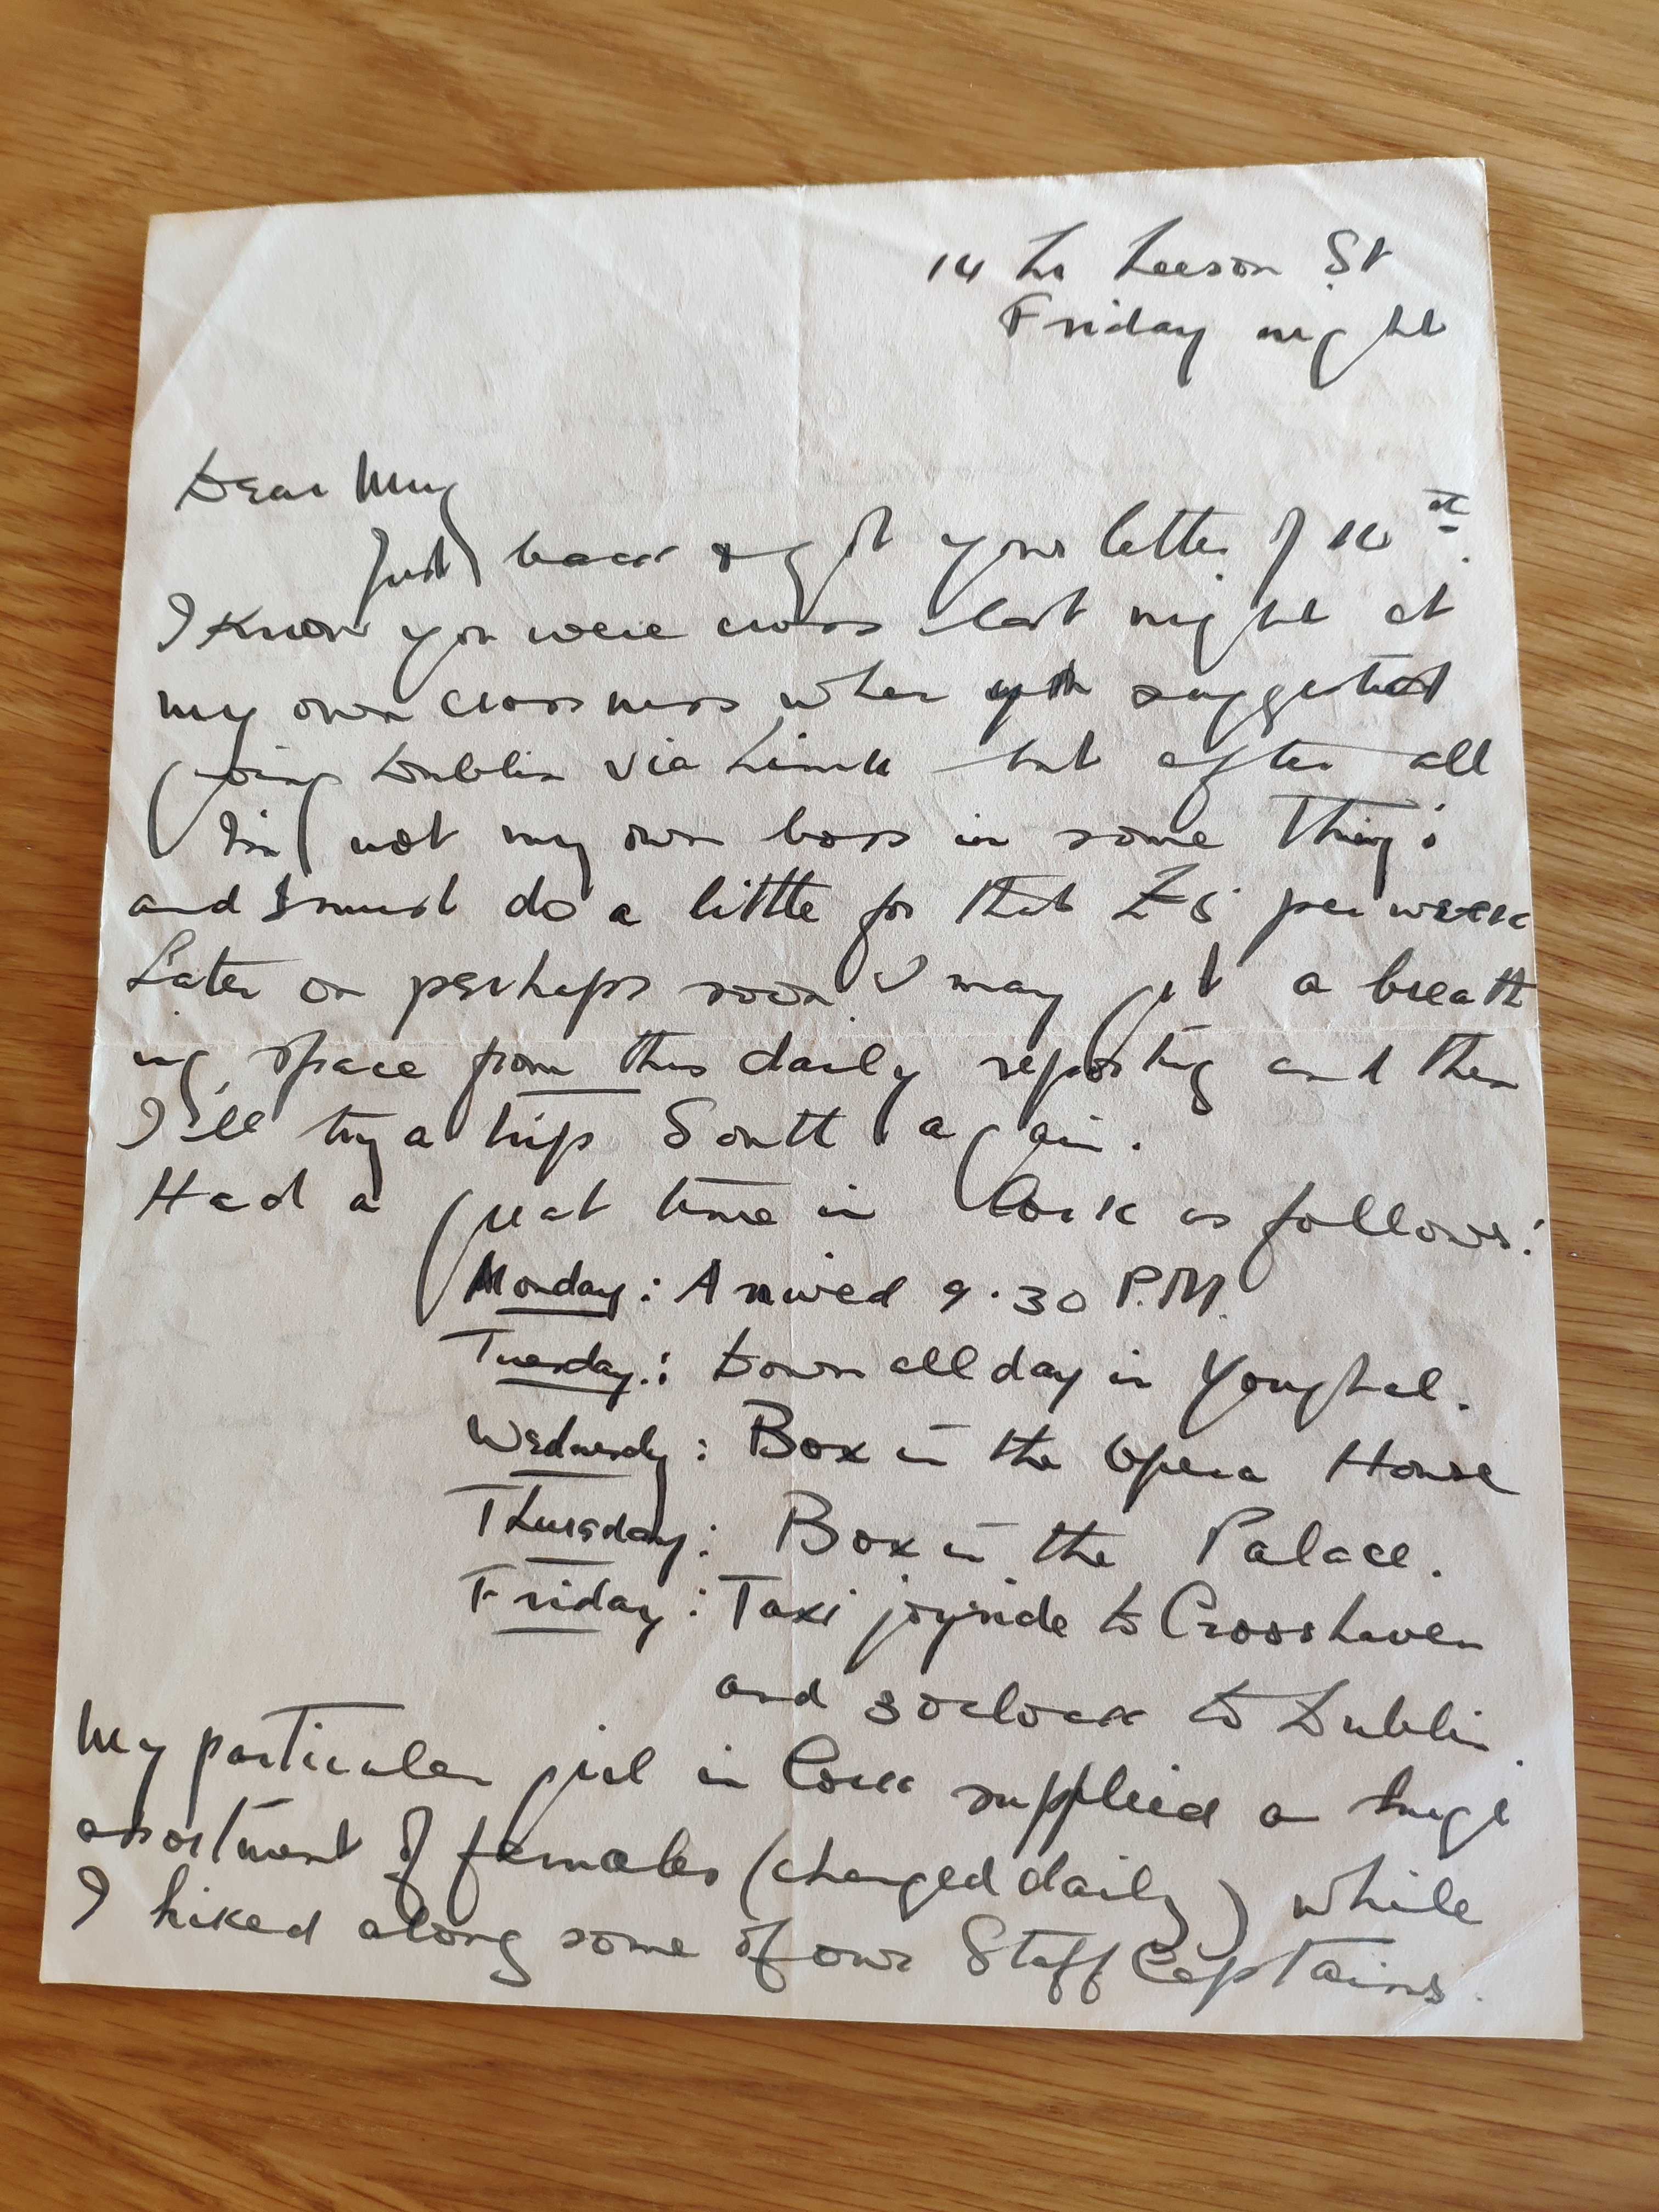 14 Lr Leeson St
Friday night
Dear
Just back & got your letter of
I know you were cross last night at
my own crossness when suggested
going Dublin via Limk but after all
I'm not my own boss in some things
and I must do a little for that per week
Later on perhaps soon I may get a breath
ing space from this daily reporting and then
I'll try a trip South again.
Had a great time in Cork as follows:
Monday: Arrived 9.30 P.M.
Tuesday.: Down all day in Youghal.
Wednesdy: Box in the Opera House
Thursday: Box in the Palace.
Friday: Taxi joyride to Crosshaven
and 3 oclock to Dublin.
My particular girl in Cork supplied a huge
assortment of females (changed daily) while
I hiked along some of our Staff Captains.